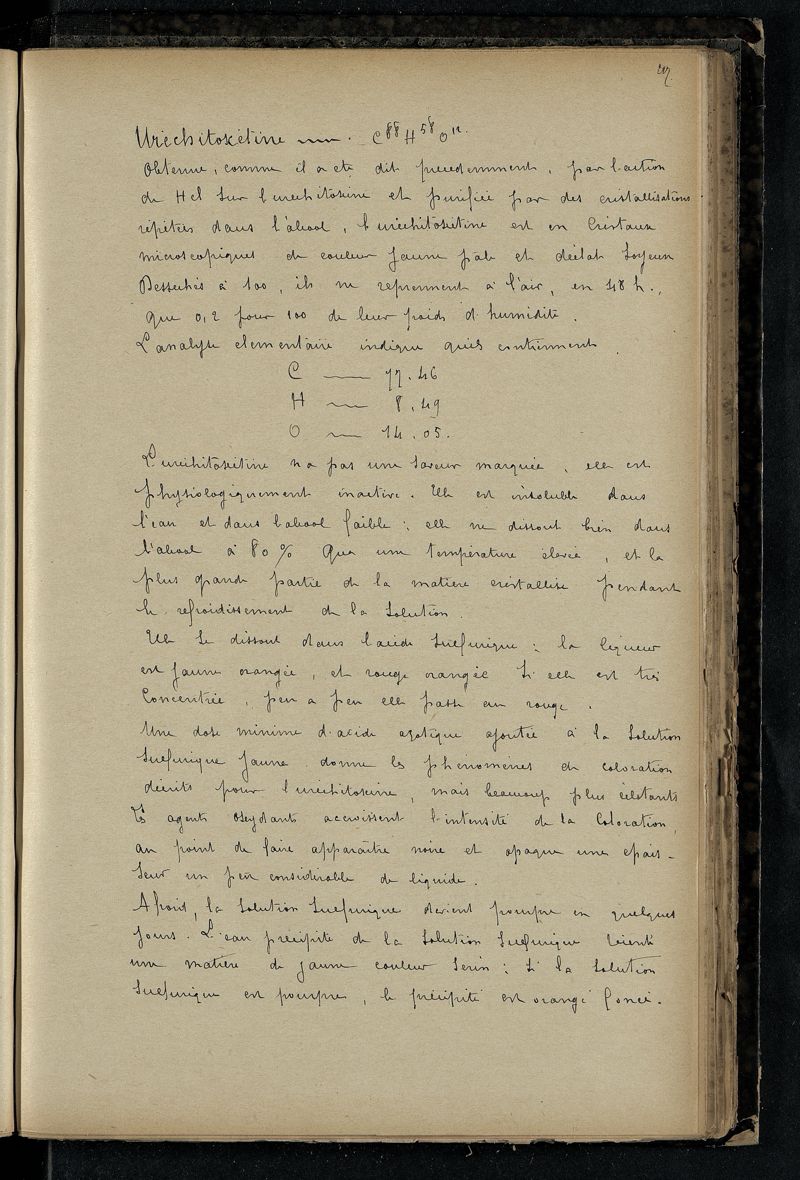 Uréchitoxétine —— . C⁸⁸H⁵⁸O¹².
Obtenue, comme il a eté dit precedemment, par l'action
de Hcl sur l'urechitoxine et purifiée par des cristallisations
répétées dans l'alcool, l'uréchitoxétine est en Cristaux
microscopiques de couleur jaune pale et d'éclat soyeux
Dessechés à 100, ils ne reprennent à l'air, en 48 h.,
que 0,2 pour 100 de leur poids d'humidité.
L'analyse elementaire indique qu'ils contiennent
C —— 77.46
H —— 8.49
O —— 14.05.
L'uréchitoxétine n'a pas une saveur marquée, elle est
physiologiquement inactive. Elle est insoluble dans
l'eau et dans l'alcool faible; elle ne dissout bien dans
l'alcool à 80% Qu'a une température élevée, et la
plus grande partie de la matière cristallise pendant
le refroidissement de la Solution.
Elle se dissout dans l'acide sulfurique; la liqueur
est jaune orangée, et rouge orangée si elle est très
Concentrée, peu a peu elle passe au rouge.
Une dose minime d'acide azotique ajoutée à la Solution
Sulfurique jaune donne les phenomènes de coloration
décrits pour l'uréchitoxine, mais beaucoup plus éclatants
Les agents oxydants accroissent l'intensité de la Coloration,
au point de faire apparaître noire et opaque une epais-
seur un peu considerable de liquide.
A froid, la solution Sulfurique devient pourpre en quelques
jours. L'eau precipite de la Solution Sulfurique récente
une matière de jaune couleur Serin; Si la Solution
Sulfurique est pourpre, le précipité est orangé foncé.